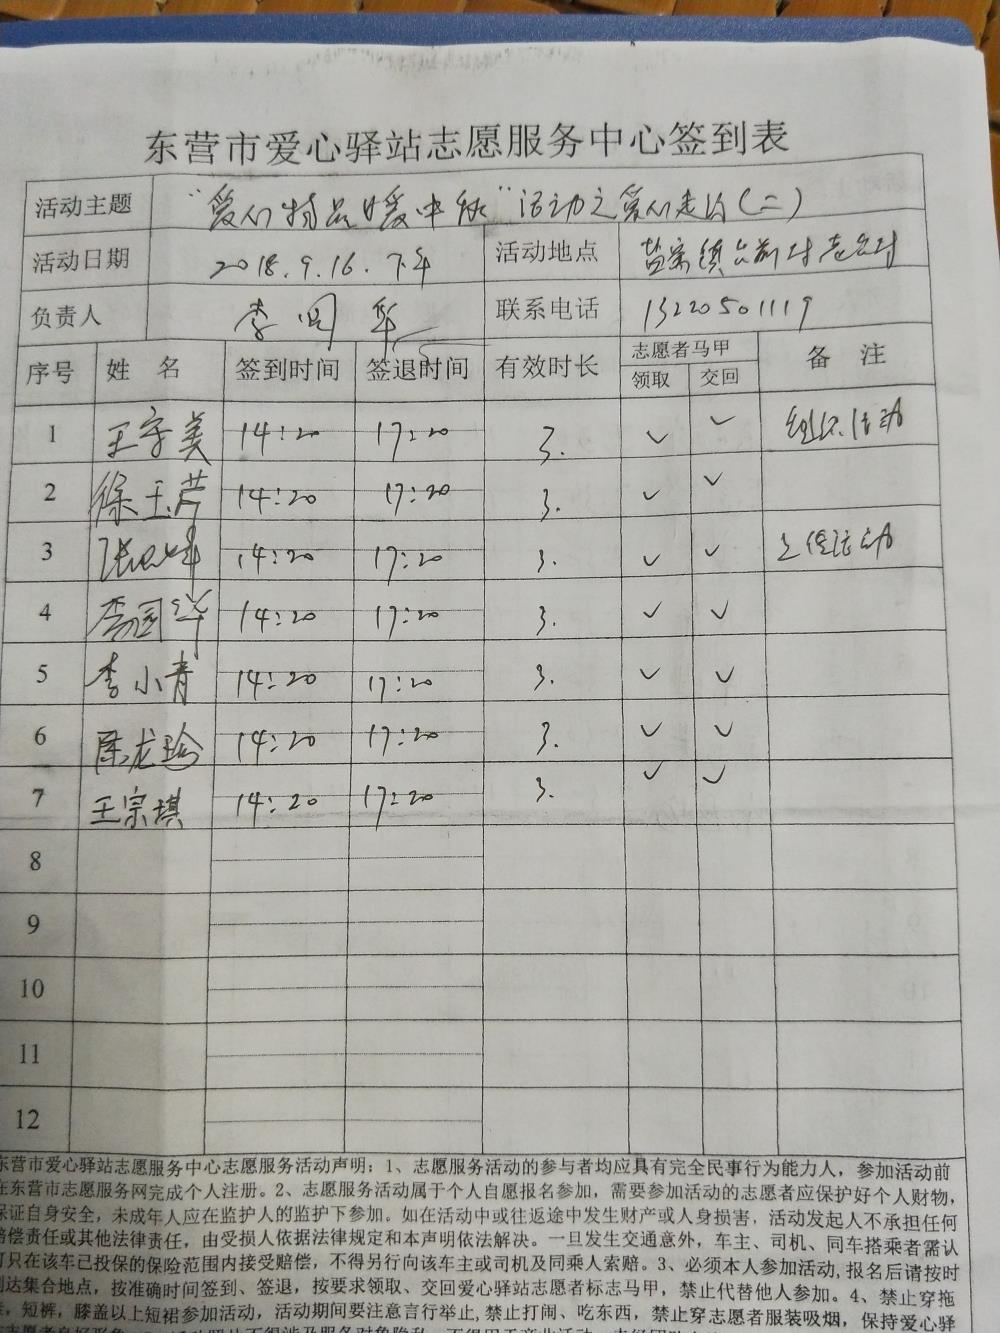 东营市爱心驿站志愿服务中心签到表
活动主题 "爱心 暖中秋"活动之爱心走访(二)
活动日期 2018.9.16.下午 活动地点 盐窝镇
负责人 李国华 联系电话 13220501119
序号 姓 名 签到时间 签退时间 有效时长 志愿者马甲 备 注
领取 交回
1 王守美 14:20 17:20 3. ✓ ✓ 组织活动
2 徐玉芹 14:20 17:20 3. ✓ ✓
3 张 14:20 17:20 3. ✓ ✓ 活动
4 李国华 14:20 17:20 3. ✓ ✓
5 李小青 14:20 17:20 3. ✓ ✓
6 陈龙珍 14:20 17:20 3. ✓ ✓
7 王宗琪 14:20 17:20 3. ✓ ✓
8
9
10
11
12
东营市爱心驿站志愿服务中心志愿服务活动声明：1、志愿服务活动的参与者均应具有完全民事行为能力人，参加活动前
在东营市志愿服务网完成个人注册。2、志愿服务活动属于个人自愿报名参加，需要参加活动的志愿者应保护好个人财物，
保证自身安全，未成年人应在监护人的监护下参加。如在活动中或往返途中发生财产或人身损害，活动发起人不承担任何
赔偿责任或其他法律责任，由受损人依据法律规定和本声明依法解决。一旦发生交通意外，车主、司机、同车搭乘者需认
可只在该车已投保的保险范围内接受赔偿，不得另行向该车主或司机及同乘人索赔。3、必须本人参加活动，报名后请按时
到达集合地点，按准确时间签到、签退，按要求领取、交回爱心驿站志愿者标志马甲，禁止代替他人参加。4、禁止穿拖
鞋，短裤，膝盖以上短裙参加活动，活动期间要注意言行举止，禁止打闹、吃东西，禁止穿志愿者服装吸烟，保持爱心驿